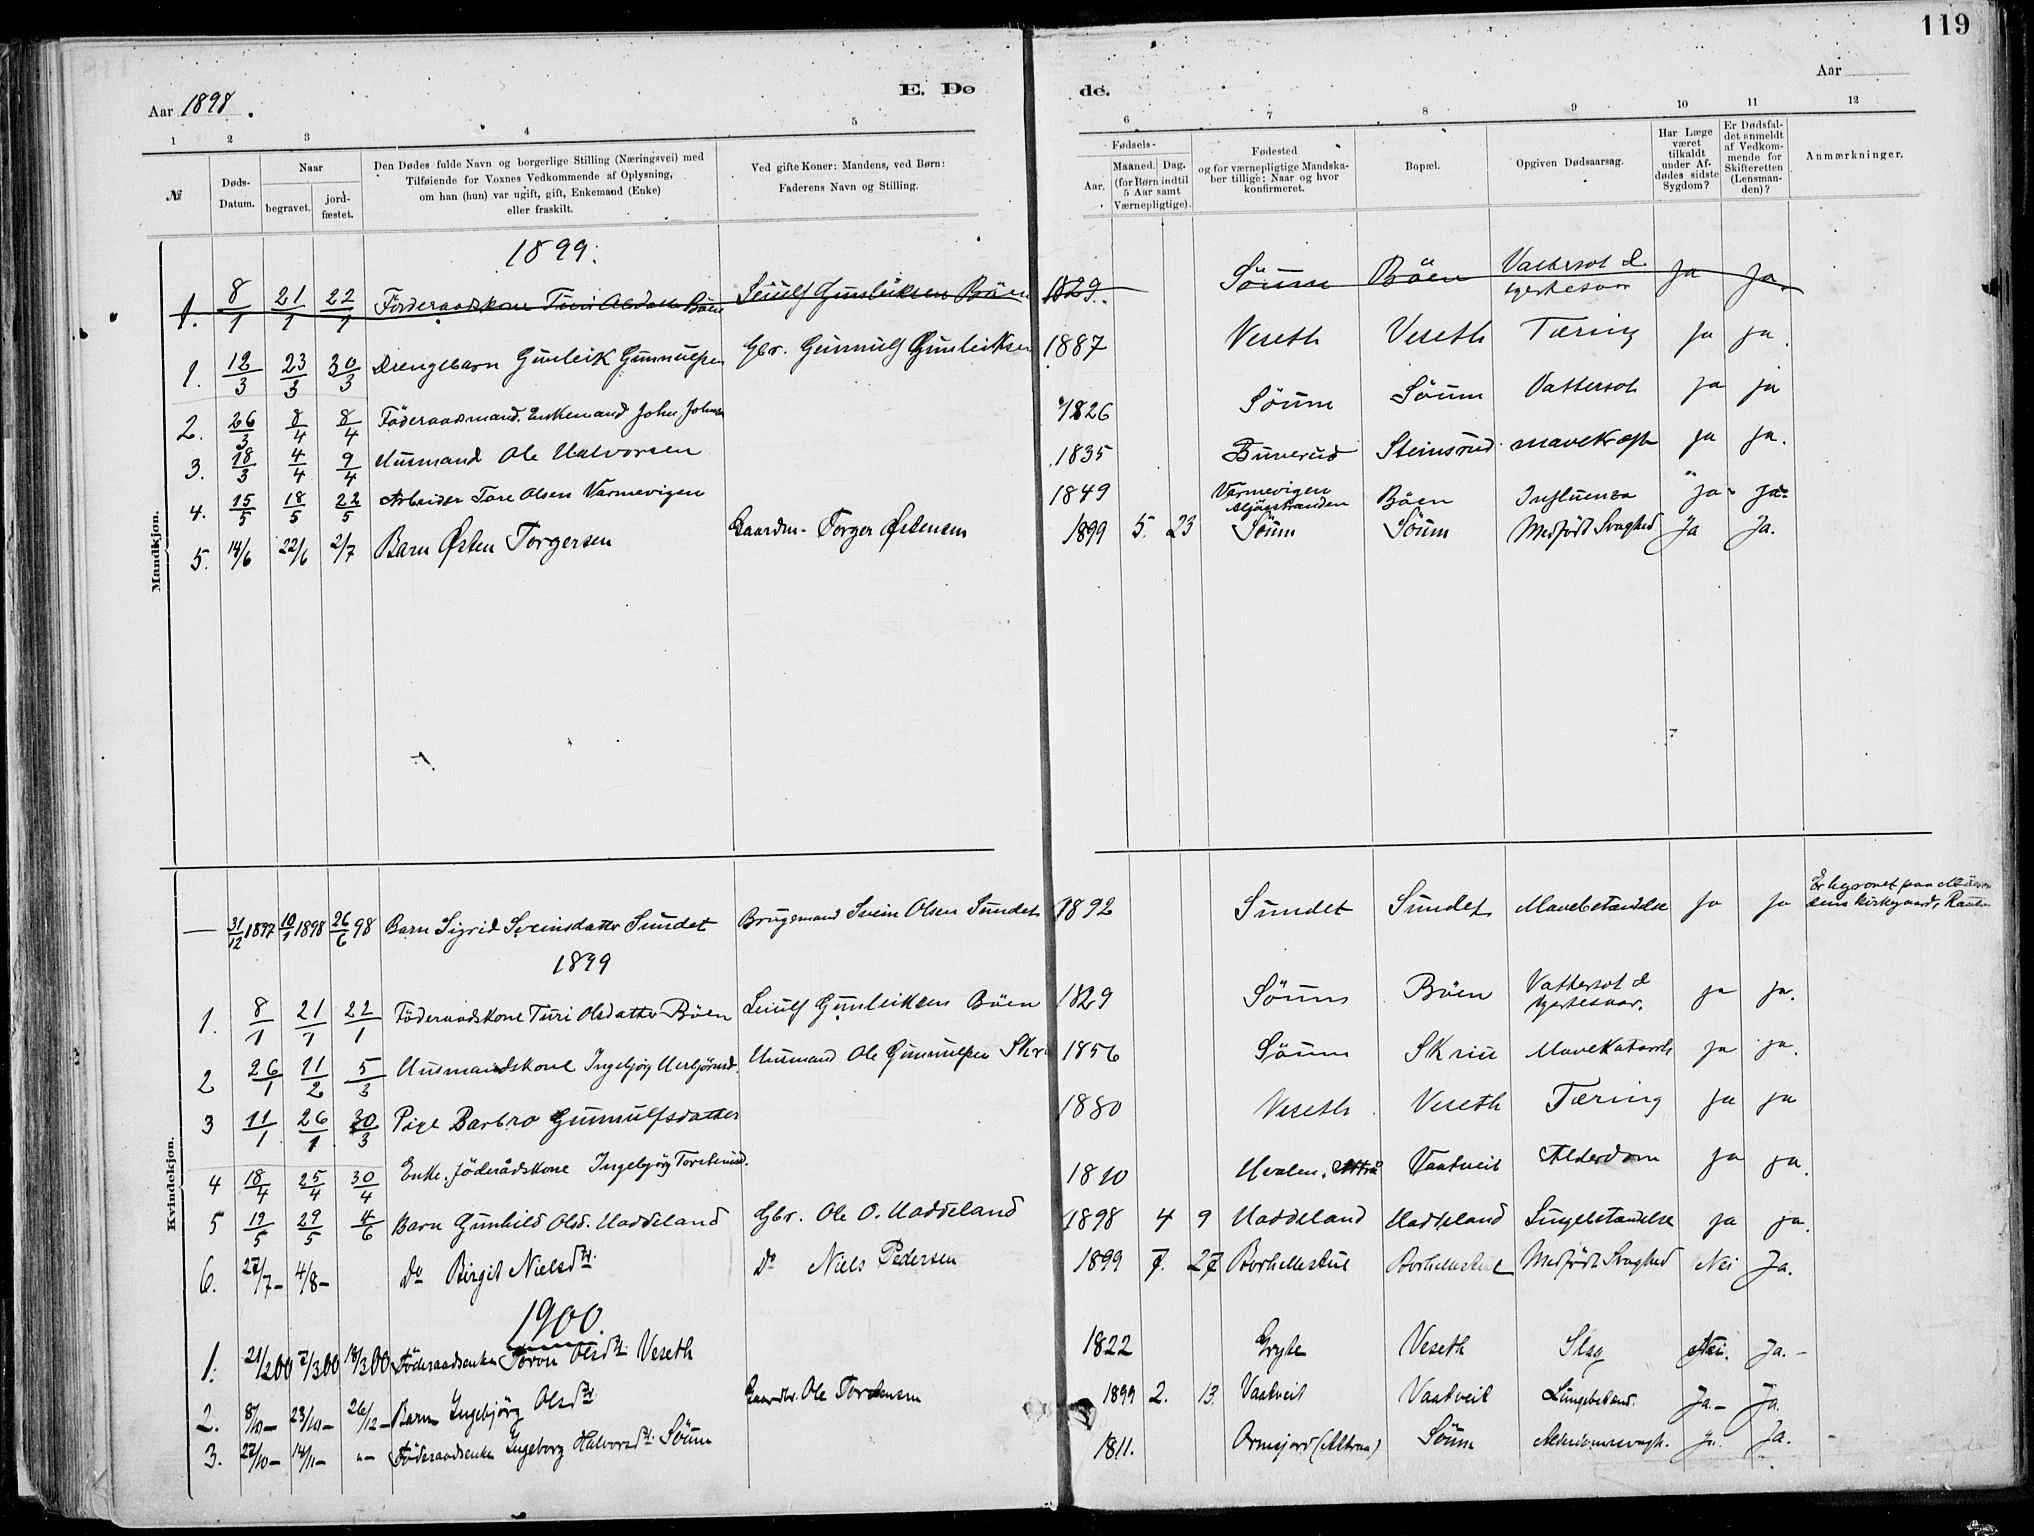 119
Aar 1898.
E. Dø
de.
Aar
1 2 3 4 5 6 7 8 9 10 11 12
№
Døds-Datum.
Naar
begravet.
jord-fæstet.
Den Dødes fulde Navn og borgerlige Stilling (Næringsvei) med
Tilføiende for Voxnes Vedkommende af Oplysning,
om han (hun) var ugift, gift, Enkemand (Enke)
eller fraskilt.
Ved gifte Koner: Mandens, ved Børn:
Faderens Navn og Stilling.
Fødsels-
Aar.
Maaned. Dag.
(for Børn indtil
5 Aar samt
Værnepligtige).
Fødested
og for værnepligtige Mandska-
ber tillige: Naar og hvor
konfirmeret.
Bopæl.
Opgiven Dødsaarsag.
Har Læge
været
tilkaldt
under Af-
dødes sidste
Sygdom?
Er Dødsfal-
det anmeldt
af Vedkom-
mende for
Skifteretten
(Lensman-
den)?
Anmærkninger.
Mandkjøn.
1899.
1. 8/1 21/1 22/1 Föderaadskone Turi Olsdatter Böen Leiulf Gunleiksen Böen 1829. Söum Böen Vattersot & hjertesvar ja ja.
1. 12/3 23/3 30/3 Drengebarn Gunleik Gunnulfsen Gbr. Gunnulf Gunleiksen 1887 Veseth Veseth Tæring ja ja.
2. 26/3 8/4 8/4 Föderaadmand. Enkemand John Johnsen 1826 Söum Söum Vattersot ja ja
3. 18/3 4/4 9/4 Husmand Ole Halvorsen 1835 Buverud Steinsrud mavekræft ja ja.
4. 15/5 18/5 22/5 Arbeider Tore Olsen Varmevigen 1849 Varmevigen Böen Influenza ja ja
5. 14/6 22/6 2/7 Barn Østen Torgersen Gaardm. Torger Østensen 1899 5. 23 Söum Söum Medfödt Svaghed Ja Ja.
Kvindekjøn.
— 31/12 1897 10/1 1898 26/6 98 Barn Sigrid Sveinsdatter Sundet Brugsmand Svein Olsen Sundet 1892 Sundet Sundet Mavebetændelse ja ja Er begravet paa
1899
1. 8/1 21/1 22/1 Föderaadskone Turi Olsdatter Böen Leiulf Gunleiksen Böen 1829 Söum Böen Vattersot & hjertesvar. ja ja.
2 26/1 11/2 5/3 Husmandskone Ingebjörg Husmand Ole Gunnulfsen 1856 Söum Skriu Mavekatarrh ja ja.
3 11/1 26/1 30/3 Pige Barbro Gunnulfsdatter 1880 Veseth Veseth Tæring ja ja
4 18/4 25/4 30/4 Enke. föderådskone Ingebjörg Torsteinsd. 1810 Hvalen. Vaatveit Alderdom ja ja.
5 19/5 29/5 4/6 Barn Gunhild Olsd. Haddeland Gbr. Ole O. Haddeland 1898 4 9 Haddeland Haddeland Lungebetændelse ja ja.
6. 27/7- 4/8- Do Birgit Nielsdtr. Do Niels Pedersen 1899 7. 27 Borhellestul Borhellestul Medfödt Svaghed Nei Ja.
1900.
1. 21/2 00 7/3 00 18/3 00 Föderaadsenke Toron Olsdtr. Veseth 1822 Gryte Veseth Slag Nei. Ja.-
2. 8/10- 23/10- 26/12- Barn Ingebjörg Olsdtr. Gaardbr. Ole Torstensen 1899 2. 13. Vaatveit Vaatveit Lungebetænd. Ja.- Ja.
3. 27/10- 14/11- "- Föderaadsenke Ingeborg Halvorsdtr. Söum 1811. Ormsjord (Attraa) Söum Alderdomssvagh. Ja. Ja. -